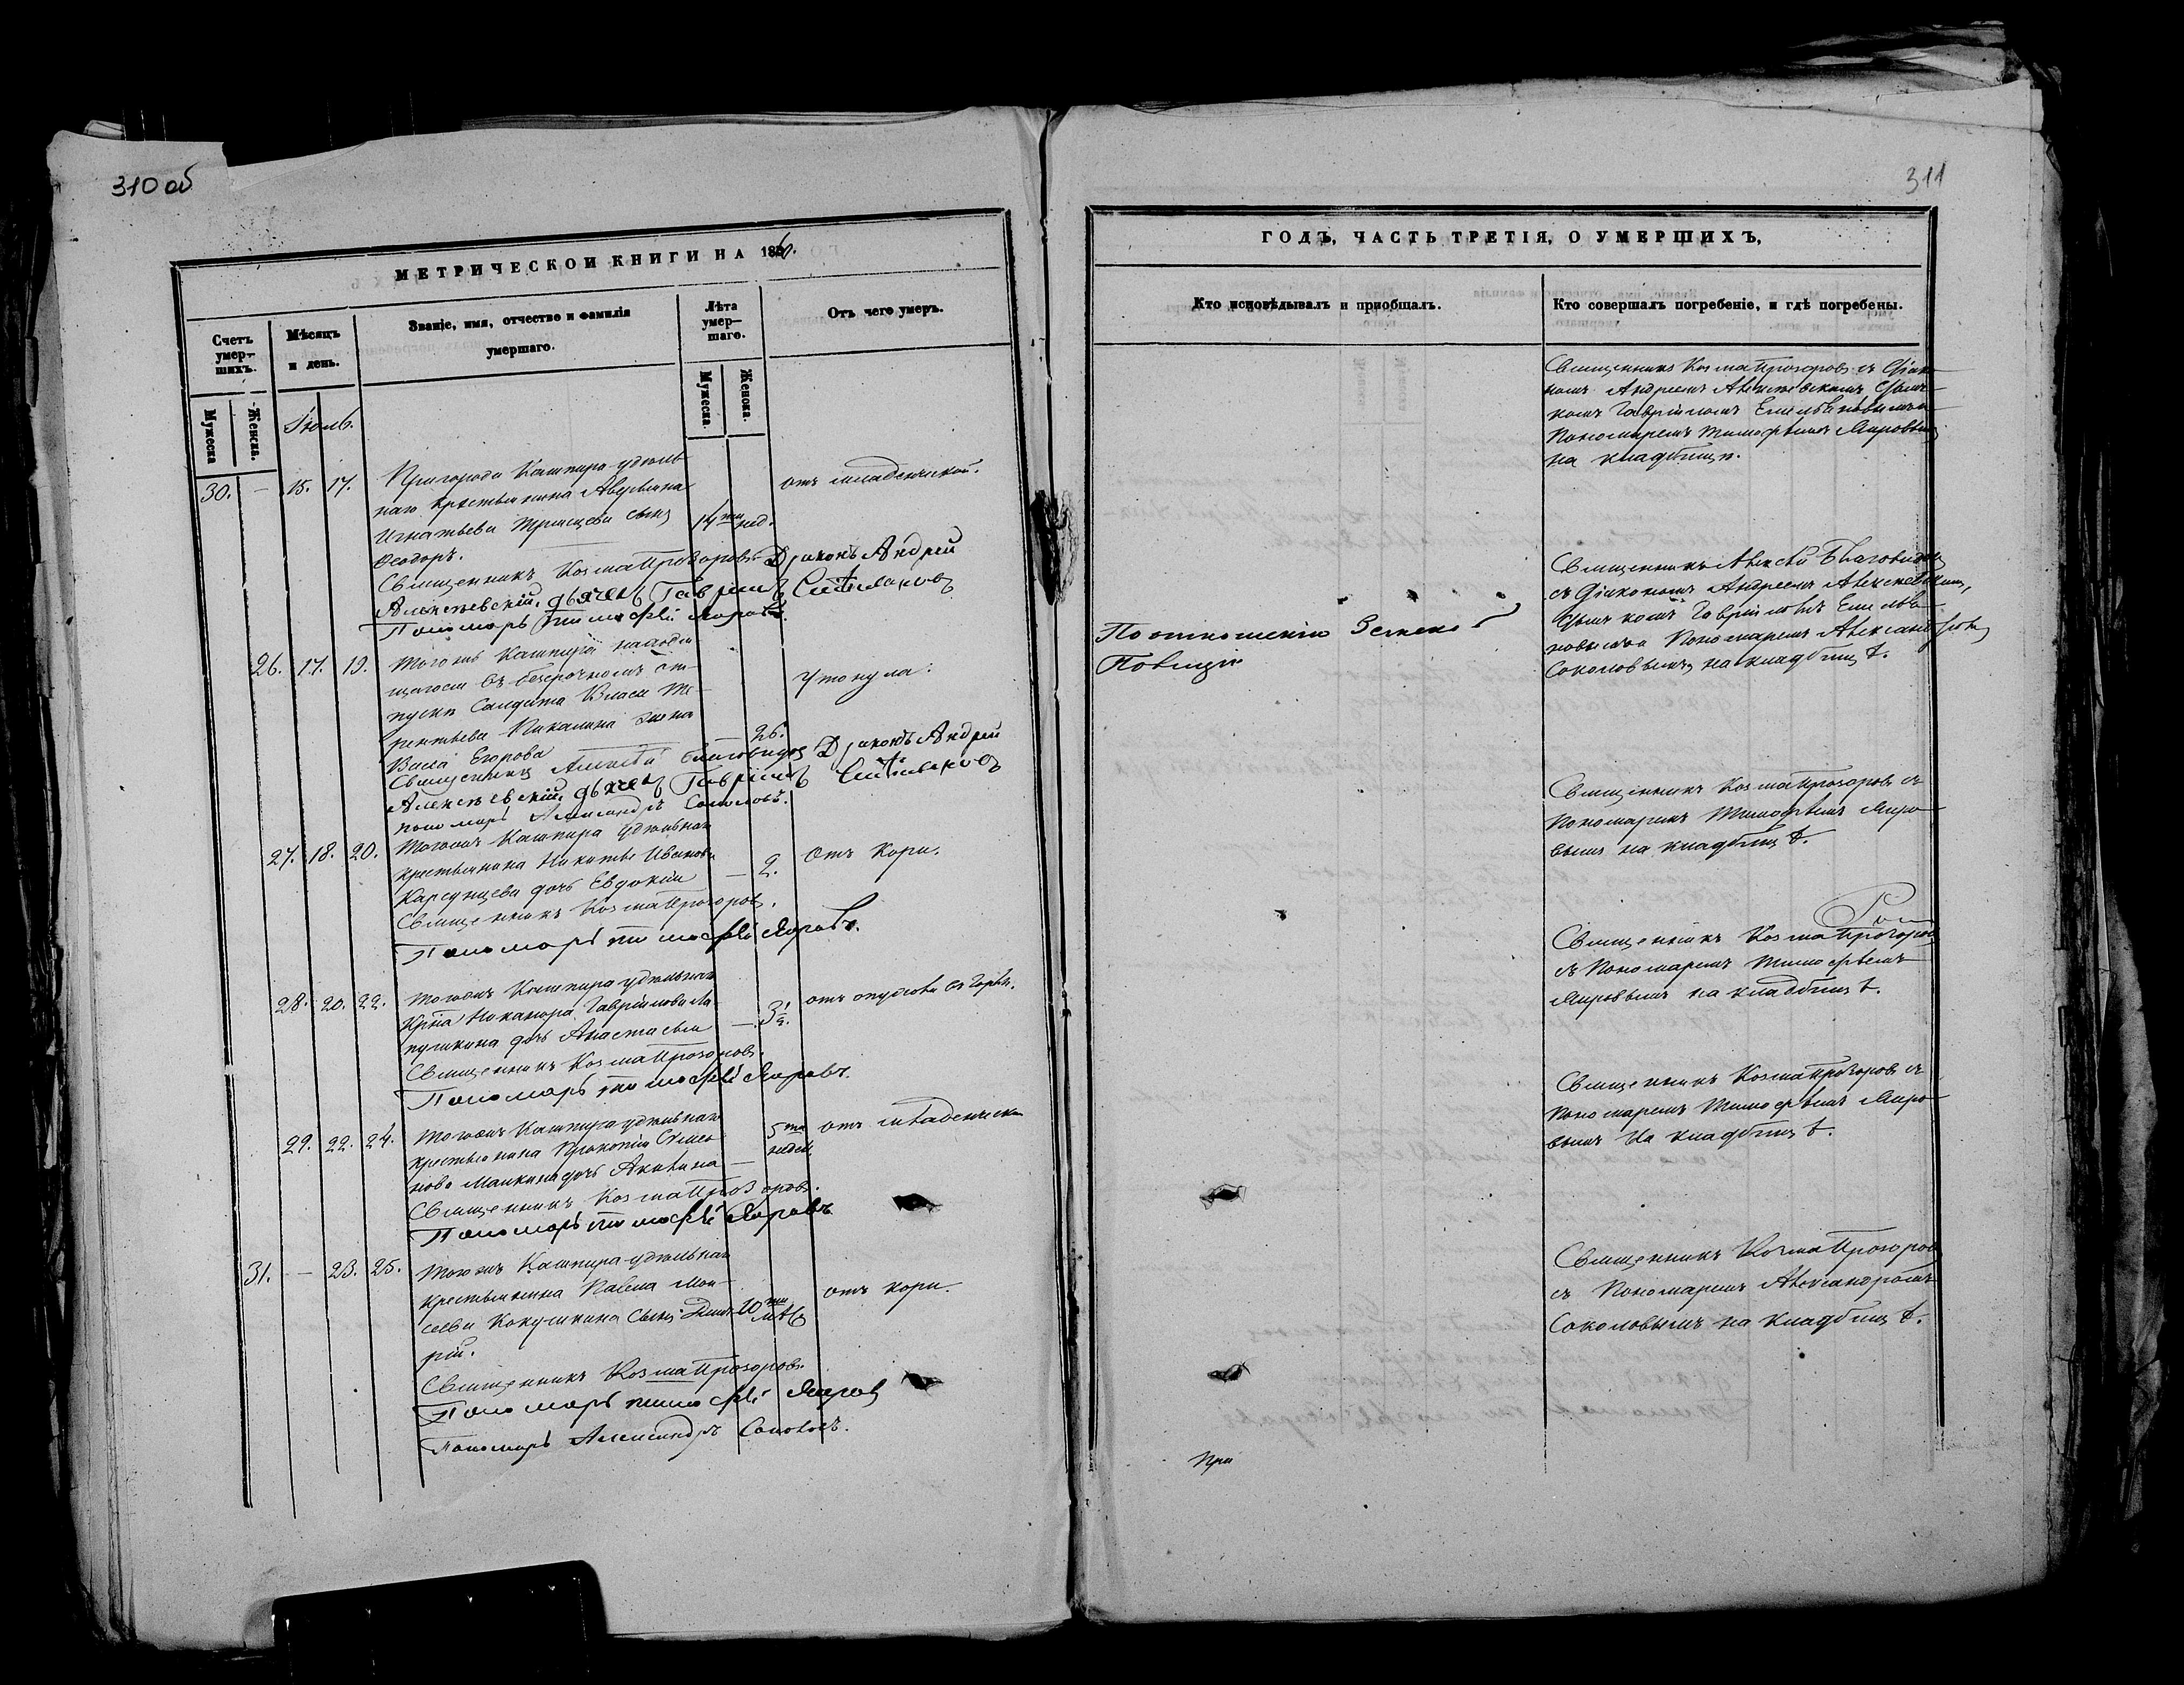 310 об
МЕТРИЧЕСКОЙ КНИГИ НА 186
Счетъ умерших.
Мѣсяцъ и день.
Званіе, имя, отчество и фамилія умершаго.
Лѣта умершаго.
Отъ чего умеръ.
Мужеска
Женска.
Мужеска.
Женска.
Іюль.
30. — 15. 17.
Пригорода Кашпира удѣль-
наго крестьянина Аверьяна
Игнатьева сынъ
Ѳеодоръ.
14ти нед.
отъ младенческой.
Священникъ Козма Прозоровъ Діаконъ Андрей
Алексѣевскій, дьячекъ Гавріилъ
Пономарь Тимофей Мировъ.
26. 17. 19.
Тогожъ Кашпира находя-
щагося въ безсрочномъ от-
пускѣ Солдата Власа Те-
рентьева Пикалина жена
Васса Егорова
26.
Утонула.
Священникъ Алексѣй Благовидовъ Діаконъ Андрей
Алексѣевскій, дьячекъ Гавріилъ
пономарь Александръ Соколовъ.
27. 18. 20.
Тогожъ Кашпира удѣльнаго
крестьянина Никиты Иванова
Карсунцева дочь Евдокія
— 2.
Отъ кори.
Священникъ Козма Прозоровъ.
Пономарь Тимофей Мировъ.
28. 20. 22.
Тогожъ Кашпира удѣльнаго
Крна Никанора Гаврилова Ла-
пушкина дочь Анастасія
— 3½.
отъ опухоли въ горлѣ.
Священникъ Козма Прозоровъ.
Пономарь Тимофей Мировъ.
29. 22. 24.
Тогожъ Кашпира удѣльнаго
крестьянина Прокопія Симео-
нова Манкина дочь Акилина
— 5ти недѣль
отъ младенческой
Священникъ Козма Прозоровъ.
Пономарь Тимофей Мировъ
31. — 23. 25.
Тогожъ Кашпира удѣльнаго
крестьянина Павла Мои-
сеева Кокушкина сынъ Дмит-
рій.
10ти мѣс.
отъ кори.
Священникъ Козма Прозоровъ.
Пономарь Тимофей Мировъ
Пономарь Александръ Соколовъ.
311
ГОДЪ, ЧАСТЬ ТРЕТІЯ, О УМЕРШИХЪ,
Кто исповѣдывалъ и пріобщалъ.
Кто совершалъ погребеніе, и гдѣ погребены.
Священникъ Козма Прозоровъ съ Діако-
номъ Андреемъ Алексѣевскимъ Дьяч-
комъ Гавріиломъ Емельяновымъ и
Пономаремъ Тимофѣемъ Мировымъ
на кладбищѣ.
По отношенію Земской
Полиціи
Священникъ Алексѣй Благовидовъ
съ Діакономъ Андреемъ Алексѣевскимъ,
Дьячкомъ Гавріиломъ Емелья-
новымъ и Пономаремъ Александромъ
Соколовымъ на кладбищѣ.
Священникъ Козма Прозоровъ съ
Пономаремъ Тимофѣемъ Миро-
вымъ на кладбищѣ.
Священникъ Козма Прозоровъ
съ Пономаремъ Тимофѣемъ
Мировымъ на кладбищѣ.
Священникъ Козма Прозоровъ съ
Пономаремъ Тимофѣемъ Миро-
вымъ на кладбищѣ.
Священникъ Козма Прозоровъ
съ Пономаремъ Александромъ
Соколовымъ на кладбищѣ.
При